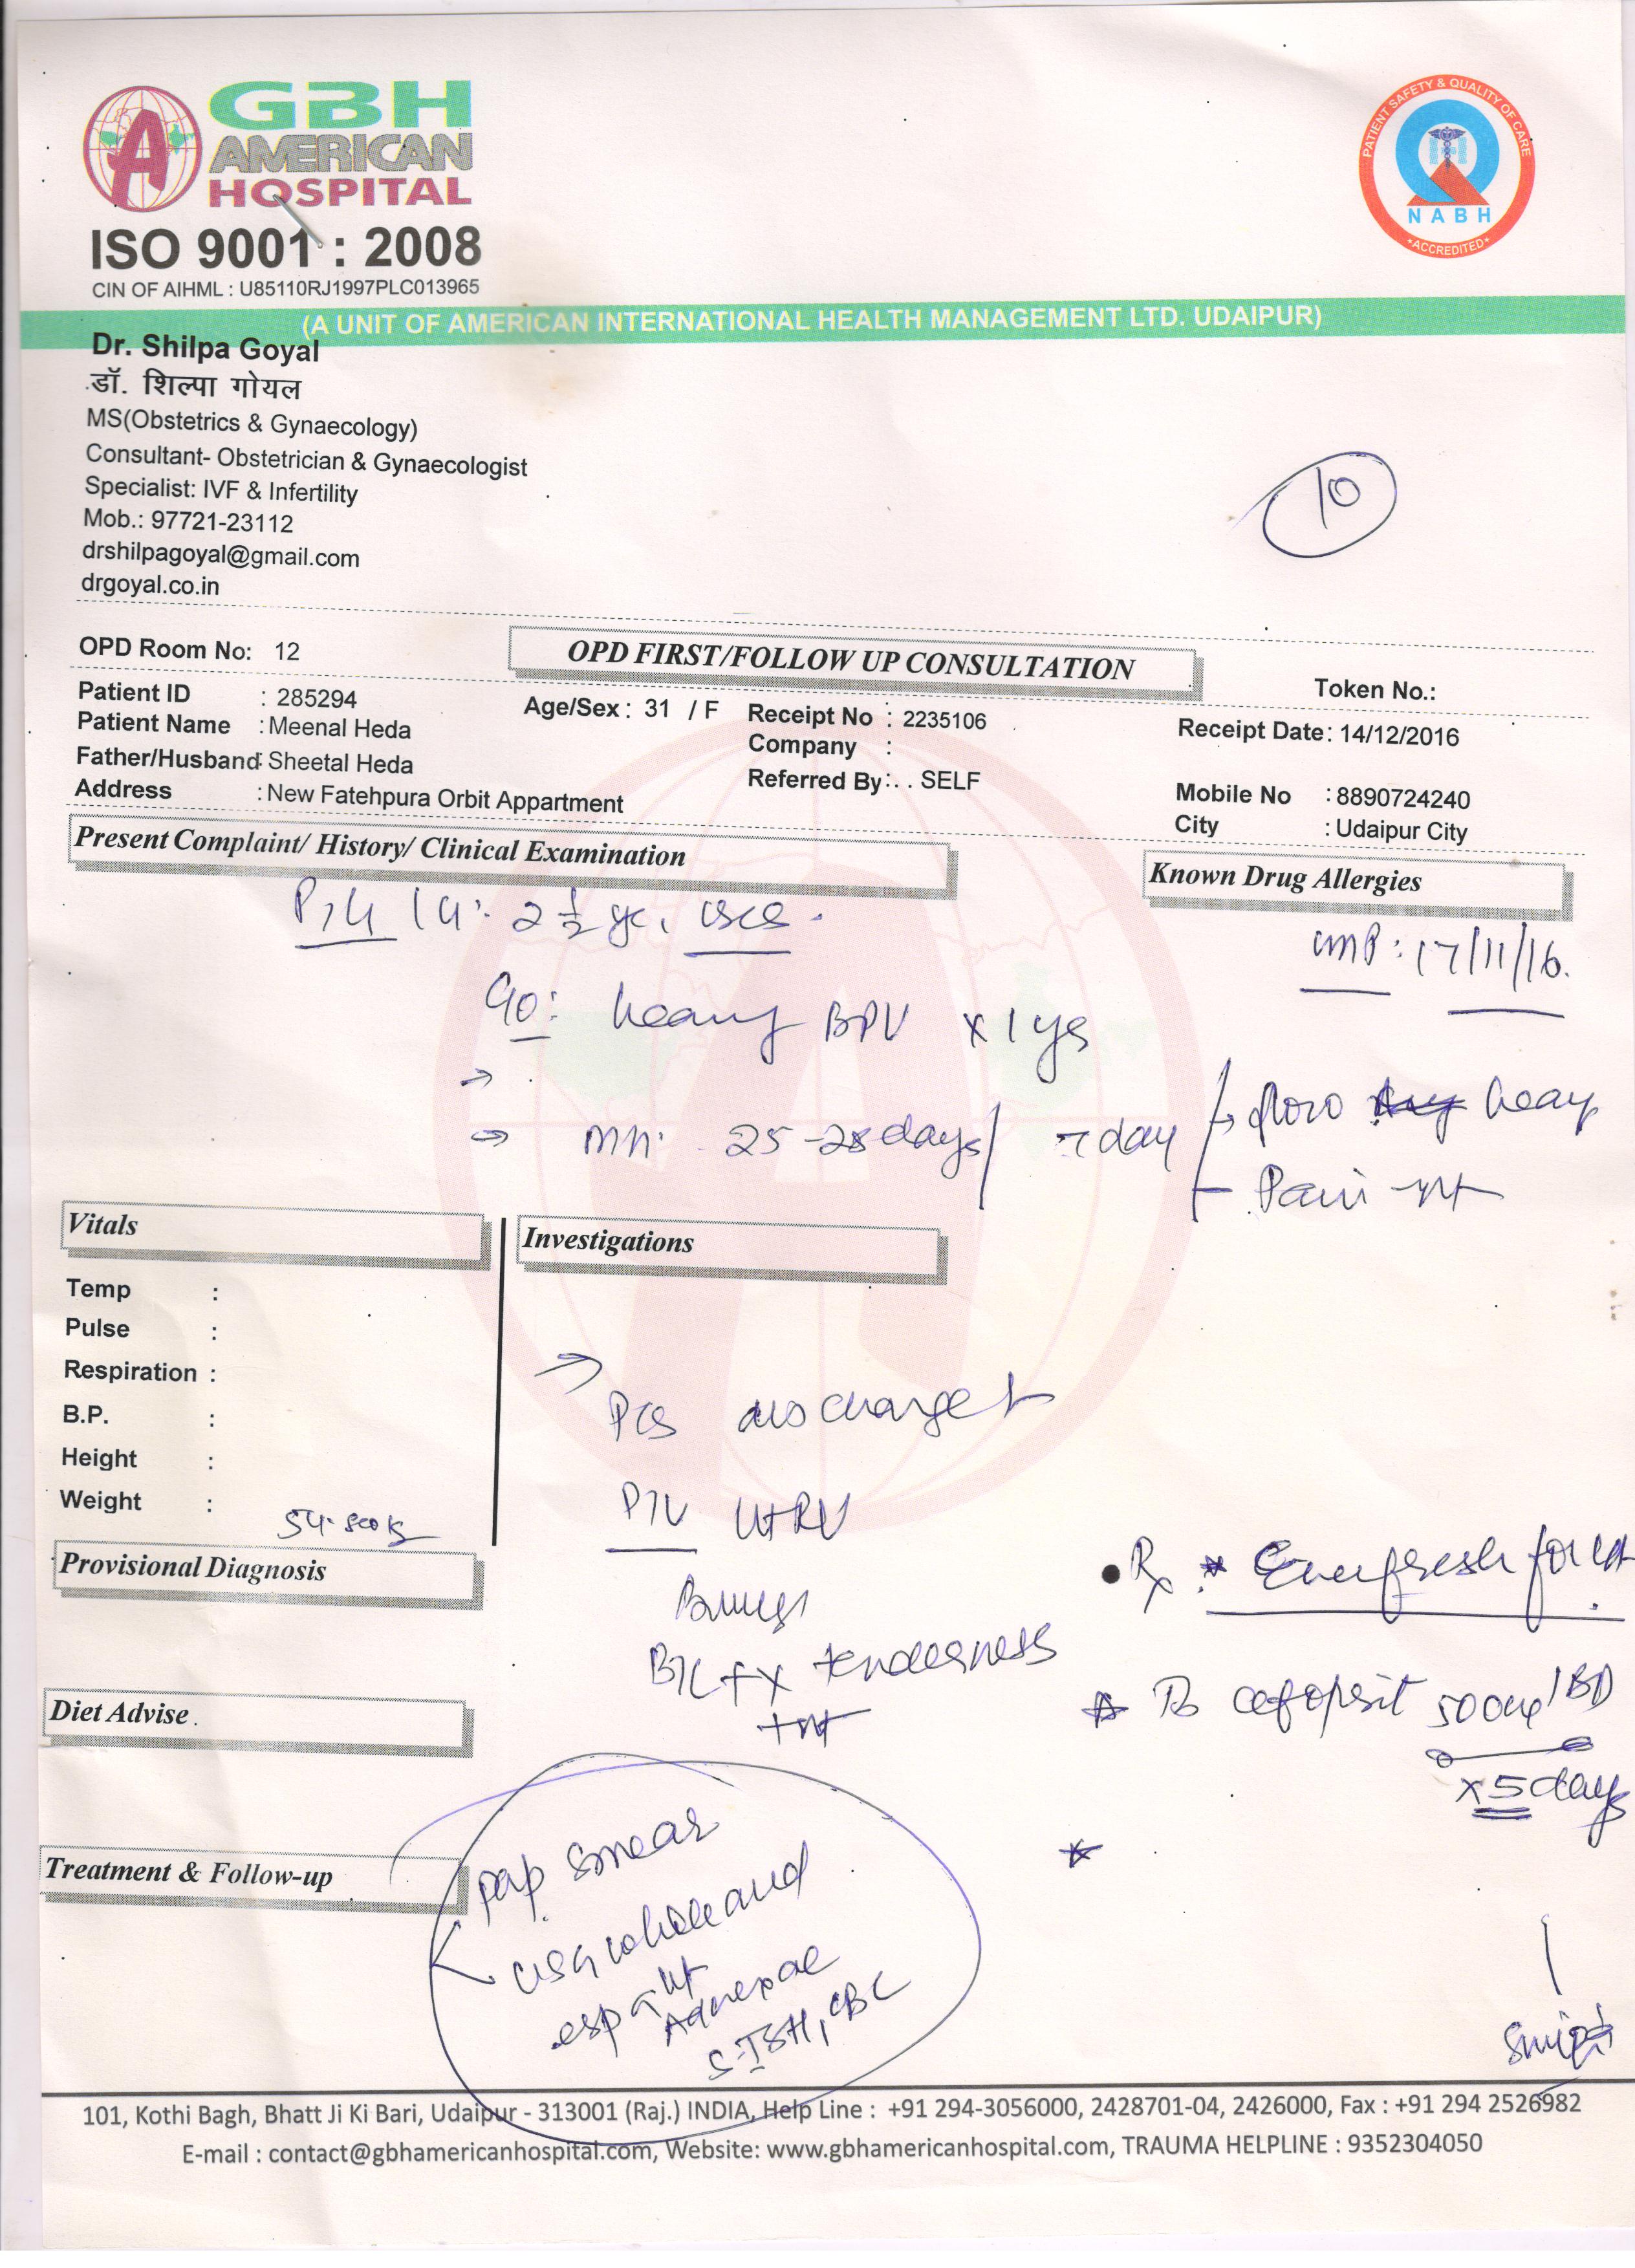 GBH
AMERICAN
HOSPITAL
ISO 9001 : 2008
CIN OF AIHML : U85110RJ1997PLC013965
PATIENT SAFETY & QUALITY OF CARE
NABH
*ACCREDITED*
(A UNIT OF AMERICAN INTERNATIONAL HEALTH MANAGEMENT LTD. UDAIPUR)
Dr. Shilpa Goyal
डॉ. शिल्पा गोयल
MS(Obstetrics & Gynaecology)
Consultant- Obstetrician & Gynaecologist
Specialist: IVF & Infertility
Mob.: 97721-23112
drshilpagoyal@gmail.com
drgoyal.co.in
10
OPD Room No: 12
OPD FIRST/FOLLOW UP CONSULTATION
Token No.:
Patient ID : 285294
Age/Sex : 31 / F
Receipt No : 2235106
Receipt Date: 14/12/2016
Patient Name : Meenal Heda
Company :
Father/Husband: Sheetal Heda
Referred By: . . SELF
Mobile No : 8890724240
Address : New Fatehpura Orbit Appartment
City : Udaipur City
Present Complaint/ History/ Clinical Examination
Known Drug Allergies
2 1/2
LMP: 17/11/16.
heavy BPV x 1 yr
25-28 days/ 7 day
flow heavy
Pain
Vitals
Investigations
Temp :
Pulse :
Respiration :
B.P. :
Height :
Weight :
P/S discharge +
P/V UTRV
Provisional Diagnosis
B/L fx tenderness
Rx * Everfresh
cefopsit 500mg/BD
x 5 days
Diet Advise .
Treatment & Follow-up
pap smear
USG whole abd
esp ut
Adnexae
S-TSH, CBC
101, Kothi Bagh, Bhatt Ji Ki Bari, Udaipur - 313001 (Raj.) INDIA, Help Line : +91 294-3056000, 2428701-04, 2426000, Fax : +91 294 2526982
E-mail : contact@gbhamericanhospital.com, Website: www.gbhamericanhospital.com, TRAUMA HELPLINE : 9352304050